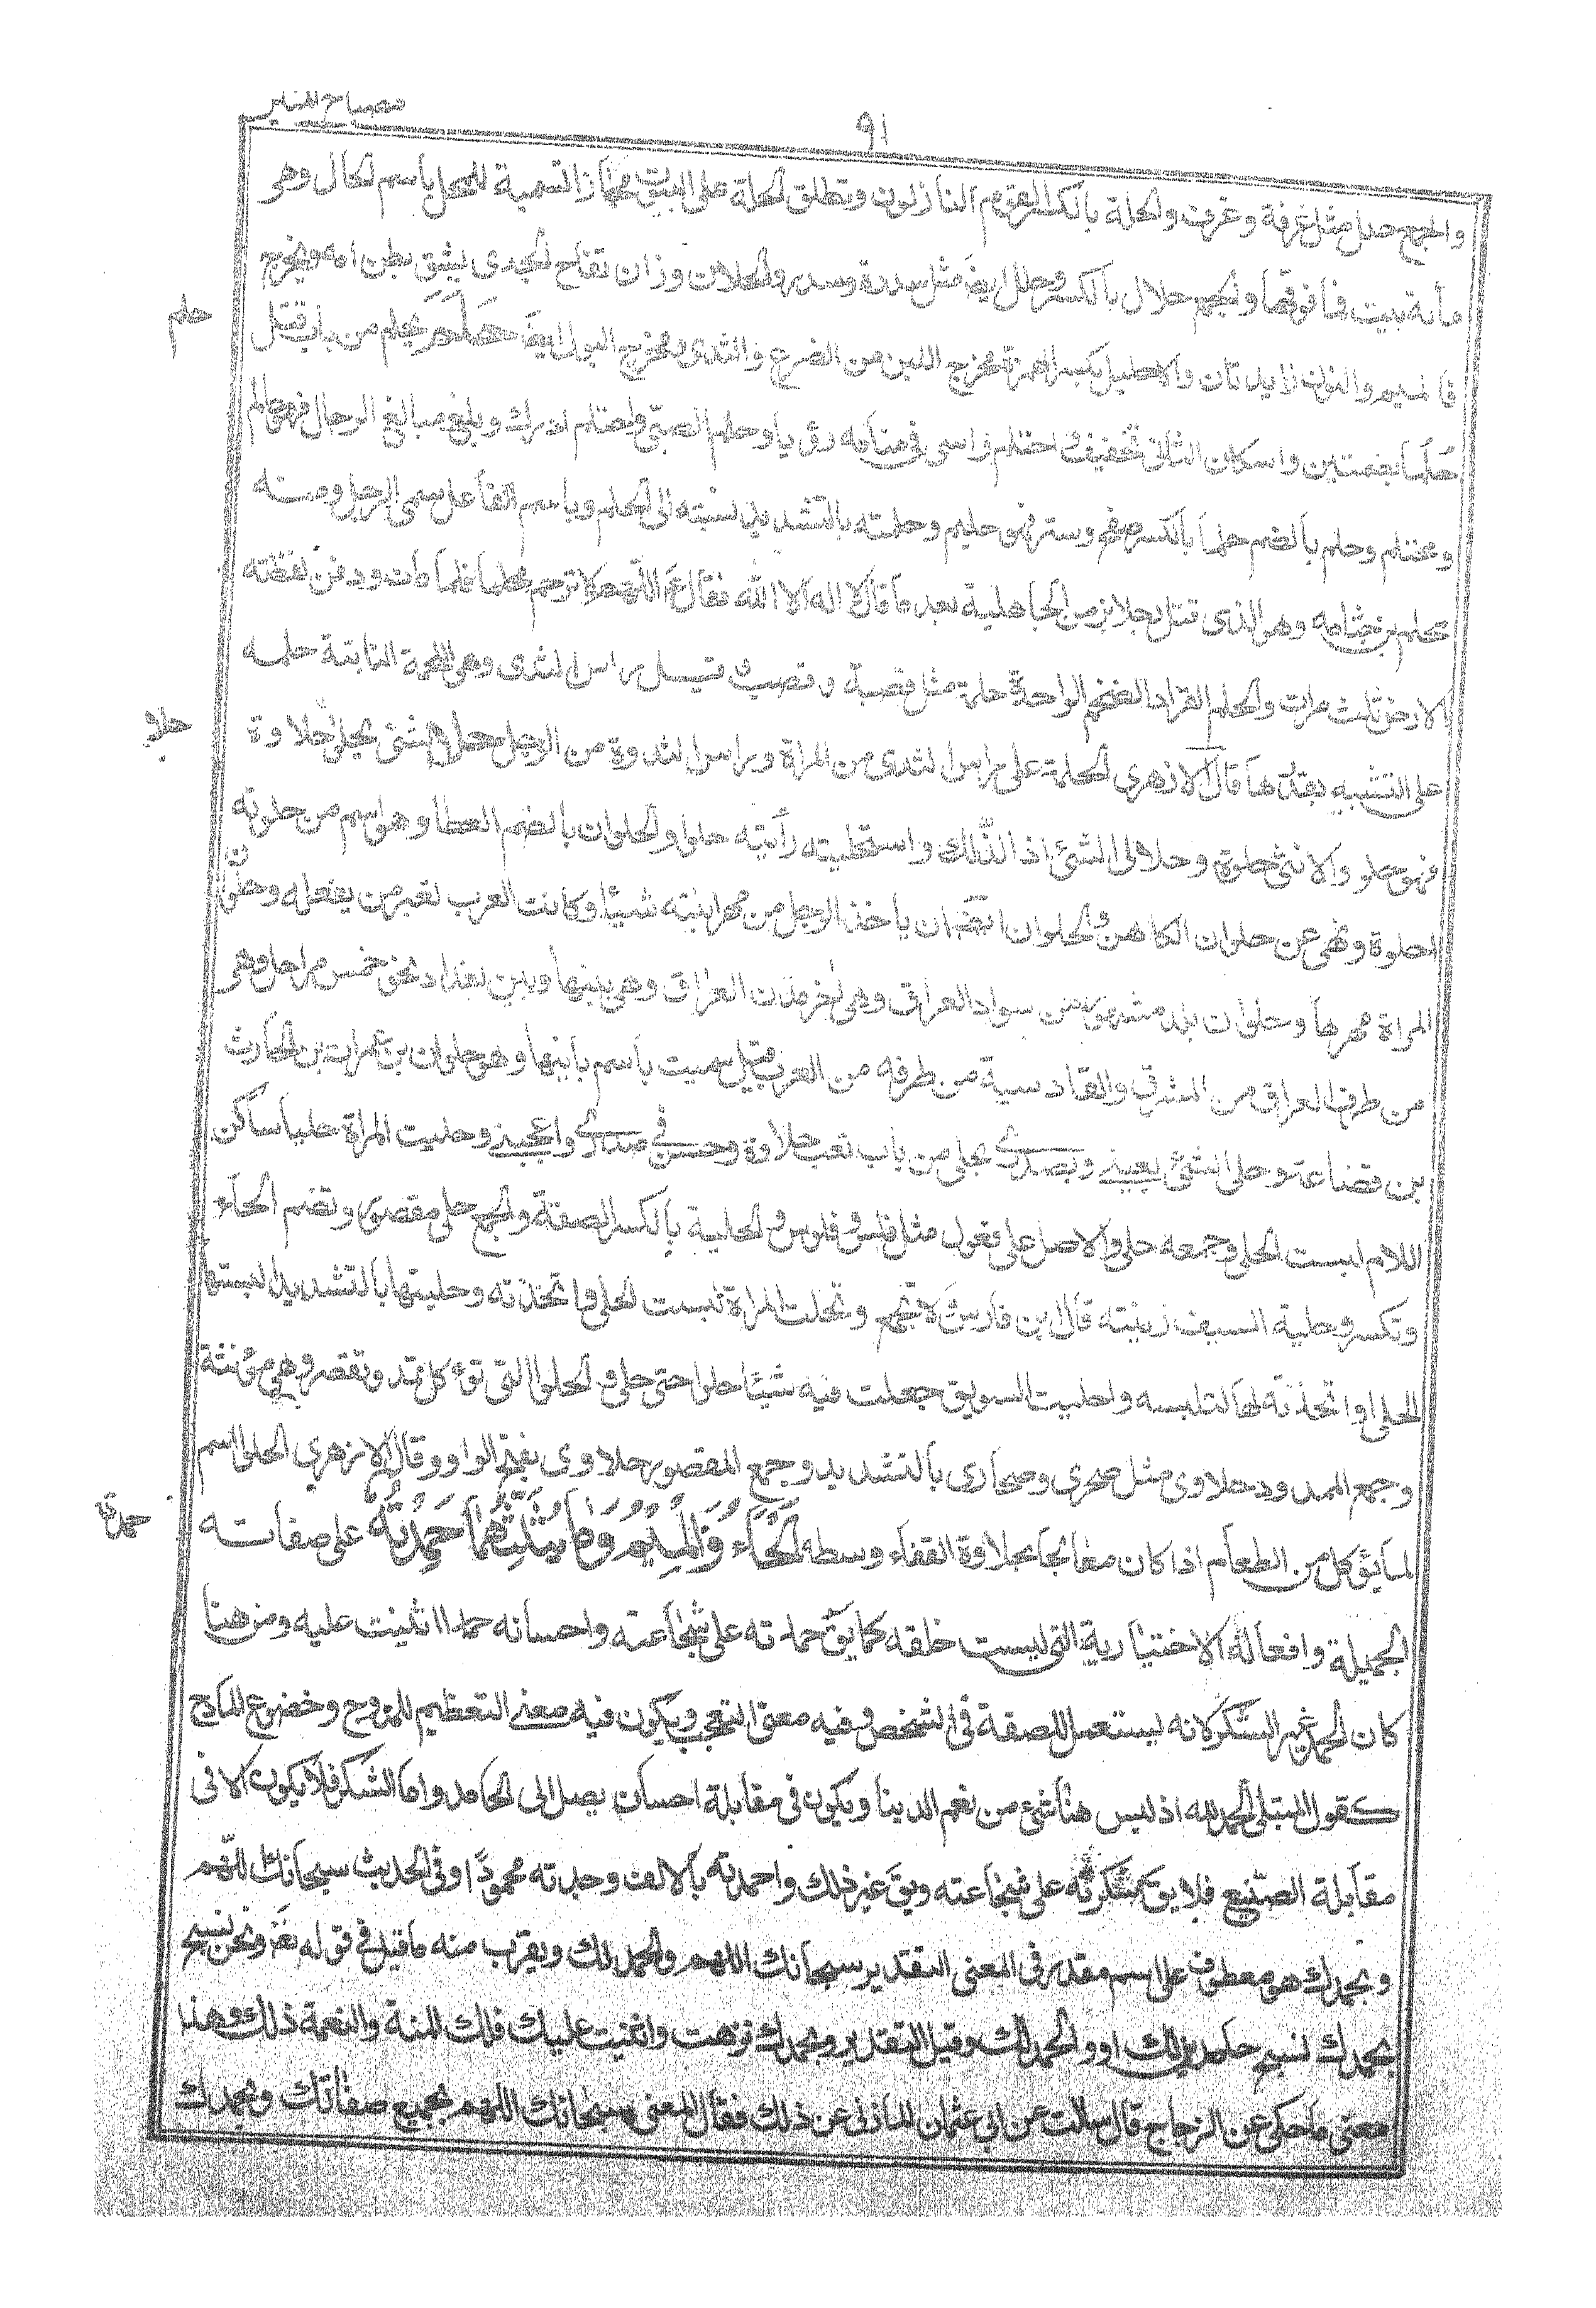 مصباح المنير
٩١
والجمع حلل مثل غرفة وغرف والحلة بالكسر القوم النازلون وتطلق الحلة على البيوت مجازا لتسمية للمحل باسم الحال وهى
مأىة بيت فما فوقها والجمع حلال بالكسر وحلل ايضا مثل سدرة وسدر والحلان وزان تفاح الجدى يشق بطن امه ويخرج
فالميم والنون زايدتان والاحليل بكسر الهمزة مخرج اللبن من الضرع والثدى ومخرج البول ايضا حَلَمَ يحلم من باب قتل
حلم
حُلُمًا بضمتين واسكان الثانى تخفيف و احتلم راى فى منامه رؤيا وحلم الصبى واحتلم ادرك وبلغ مبالغ الرجال فهو حالم
ومحتلم وحلم بالضم حلما بالكسر صفح وستر فهو حليم وحلمته بالتشديد نسبته الى الحلم وباسم الفاعل سمى الرجل ومنه
محلم بن جثامه وهو الذى قتل رجلا بزمن الجاهلية بعد ما قال لا اله الا الله فقال ع م اللهم لا ترحم محلما فلما مات ودفن لفظته
الارض ثلث مرات والحلم القراد الضخم الواحدة حلمة مثل قصبة وقصب وقيل لراس الثدى وهى اللحمة الناتئة حلمه
على التشبيه بقدرها قال الازهرى الحلمة على راس الثدى من المراة وراس الثندوة من الرجل حلا الشئ يحلو حلاوة
حلا
فهو حلو والانثى حلوة وحلا لى الشئ اذا لذ لك واستحليته رأيته حلوا والحلوان بالضم العطا وهو اسم من حلوته
احلوة ونهى عن حلوان الكاهن والحلوان ايضا ان ياخذ الرجل من مهر ابنته شيئا وكانت العرب تعير من يفعله وحلوان
المراة مهرها وحلوان بلد مشهور من سواد العراق وهى اخر مدن العراق وهى بينها وبين بغداد نحو خمس مراحل وهى
من طرف العراق من المشرق والقادسية من طرفه من العرب قيل سميت باسم بانيها وهو حلوان بن عمران بن الحارث
بن قضاعة وحلى الشئ بعينى وبصدرى يحلى من باب تعب حلاوة وحسن فى صدرى واعجبنى وحليت المراة حليا ساكن
اللام لبست الحلى وجمعه حلى والاصل على فعول مثل فلس وفلوس والحلية بالكسر الصفة والجمع حلى مقصور وتضم الحاء
وتكسر وحلية السيف زينته قال ابن فارس ولا تجمع وتحلت المراة لبست الحلى او اتخذته وحليتها بالتشديد البستها
الحلى او اتخذته لها لتلبسه واحليت السويق جعلت فيه شيئا حلوا حتى حلى والحلوا التى تؤكل تمد وتقصر وهى مؤنثة
وجمع الممدود حلاوى مثل صحرى وصحارى بالتشديد وجمع المقصور حلاوى بفتح الواو وقال الازهرى الحلوا اسم
لما يؤكل من الطعام اذا كان معالجا بحلاوة القفاء وسطه الْحَاءُ وَالْمِيمُ وَمَا يُثَلِّثُهُمَا حَمِدْتُهُ على صفاته
حمدت
الجميلة وافعاله الاختيارية التى ليست خلقه كما يق حمدته على شجاعته واحسانه حمدا اثنيت عليه ومن هنا
كان الحمد غير الشكر لانه يستعمل للصفة فى الشخص وفيه معنى التعجب ويكون فيه معنى التعظيم للمدوح وخضوع المادح
كقول المبتلى الحمد لله اذ ليس هنا شئ من نعم الدينا ويكون فى مقابلة احسان يصل الى الحامد واما الشكر فلا يكون الا فى
مقابلة الصنيع فلا يق شكرته على شجاعته ويق غير ذلك واحمدته بالالف وجدته محمودًا وفى الحديث سبحانك اللهم
وبحمدك هو معطوف على اسم مقدر فى المعنى التقدير سبحانك اللهم والحمد لك ويقرب منه ما قيل فى قوله تعه ونحن نسبح
بحمدك نسبح حامدين لك او والحمد لك وقيل التقدير وبحمدك نزهت واثنيت عليك فلك المنة والنعمة ذلك وهذا
معنى ما حكى عن الزجاج قال سالت عن ابى عثمان المازنى عن ذلك فقال المعنى سبحانك اللهم بجميع صفاتك وبحمدك